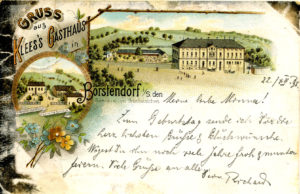 GRUSS
aus
KLEES'S GASTHAUS
in
Borstendorf i/S. den
22/VII 9
Meine liebe Minna!
Zum Geburtstag sende ich Dir die
herzlichsten Grüße & Glückwünsche.
Mögest Du ihn noch viele Jahre froh & munter
feiern. Viele Grüße an alle
Dein Richard